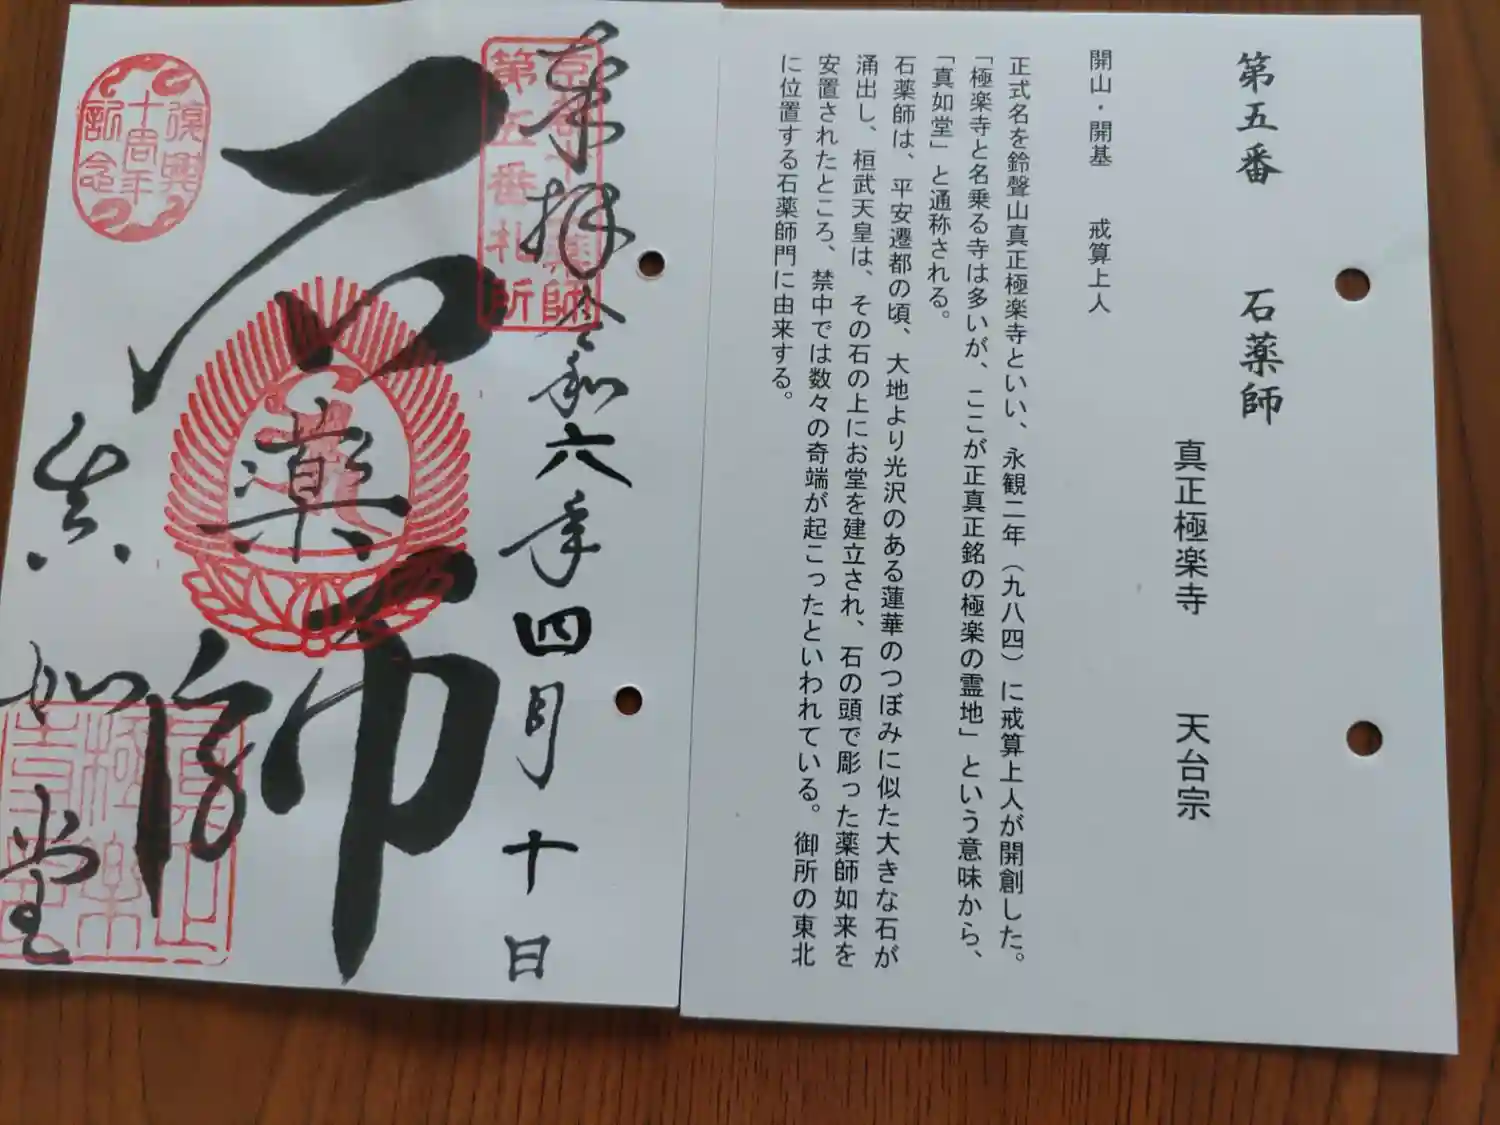 第五番 石薬師
真正極楽寺 天台宗
開山・開基 戒算上人
正式名を鈴聲山真正極楽寺といい、永観二年(九八四)に戒算上人が開創した。
「極楽寺と名乗る寺は多いが、ここが正真正銘の極楽の霊地」という意味から、
「真如堂」と通称される。
石薬師は、平安遷都の頃、大地より光沢のある蓮華のつぼみに似た大きな石が
涌出し、桓武天皇は、その石の上にお堂を建立され、石の頭で彫った薬師如来を
安置されたところ、禁中では数々の奇端が起こったといわれている。御所の東北
に位置する石薬師門に由来する。
奉拝 令和六年四月十日
京都十二薬師
第五番札所
石薬師
真如堂
復興
十周年
記念
真正
極楽
寺印